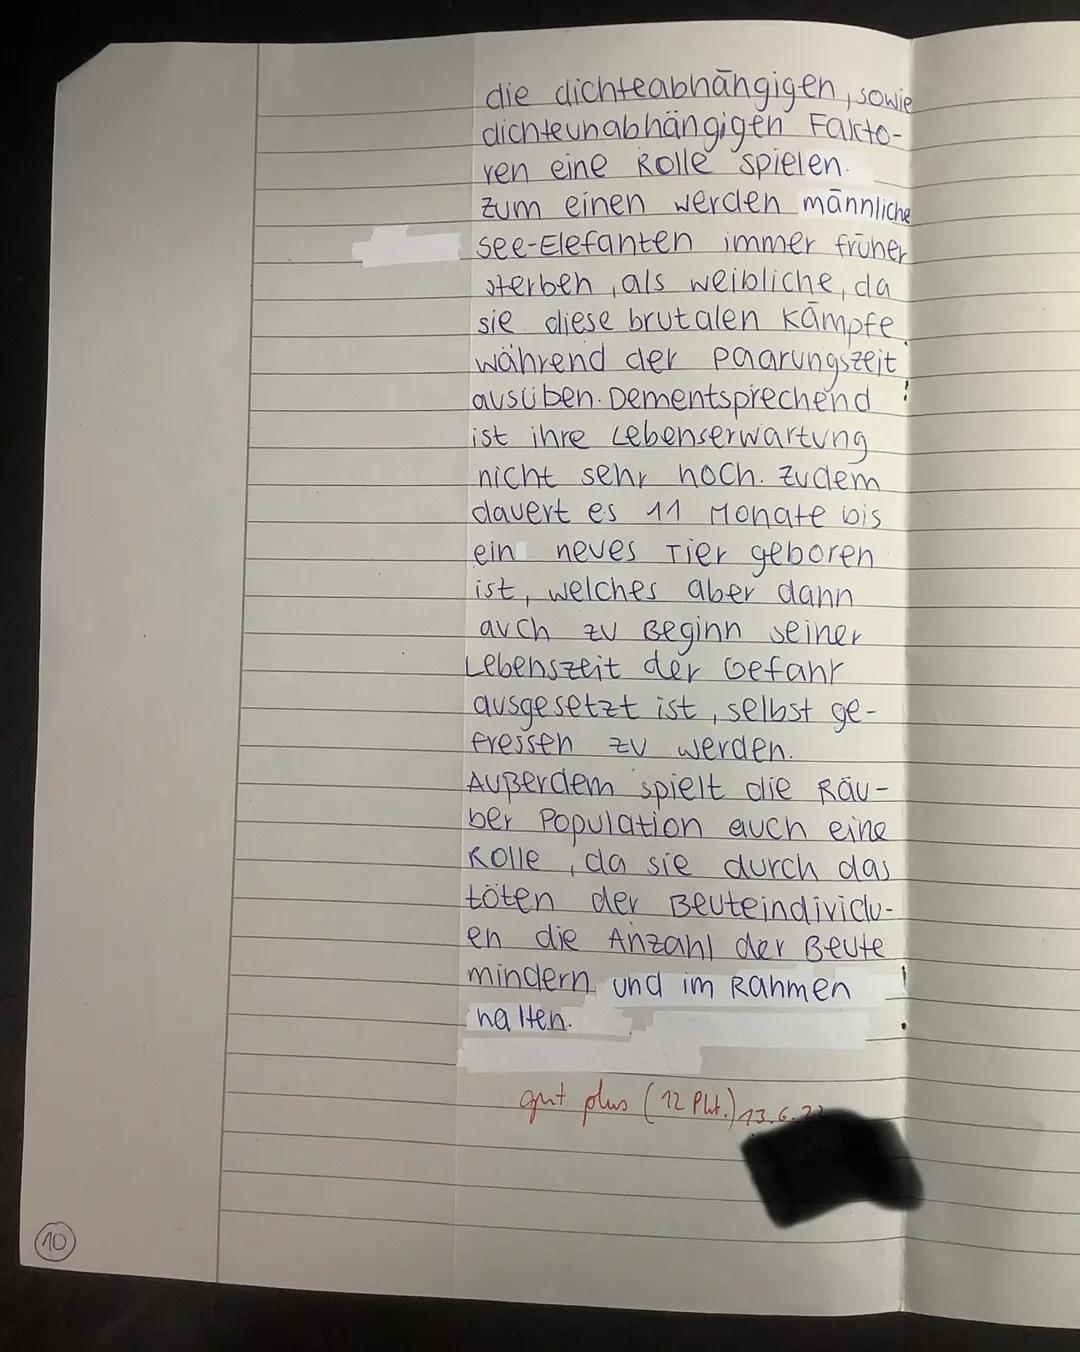 die dichteabhängigen, sowie
dichteunabhängigen Fakto-
ren eine Rolle spielen.
Zum einen werden männliche
See-Elefanten immer früher
sterben, als weibliche, da
sie diese brutalen Kämpfe
während der Paarungszeit
ausüben. Dementsprechend
ist ihre Lebenserwartung
nicht sehr hoch. Zudem
dauert es 11 Monate bis
ein neues Tier geboren
ist, welches aber dann
auch zu Beginn seiner
Lebenszeit der Gefahr
ausgesetzt ist, selbst ge-
fressen zu werden.
Außerdem spielt die Räu-
ber Population auch eine
Rolle, da sie durch das
töten der Beuteindividu-
en die Anzahl der Beute
mindern und im Rahmen
halten.
gut plus (12 Pkt.) 13.6.22
10